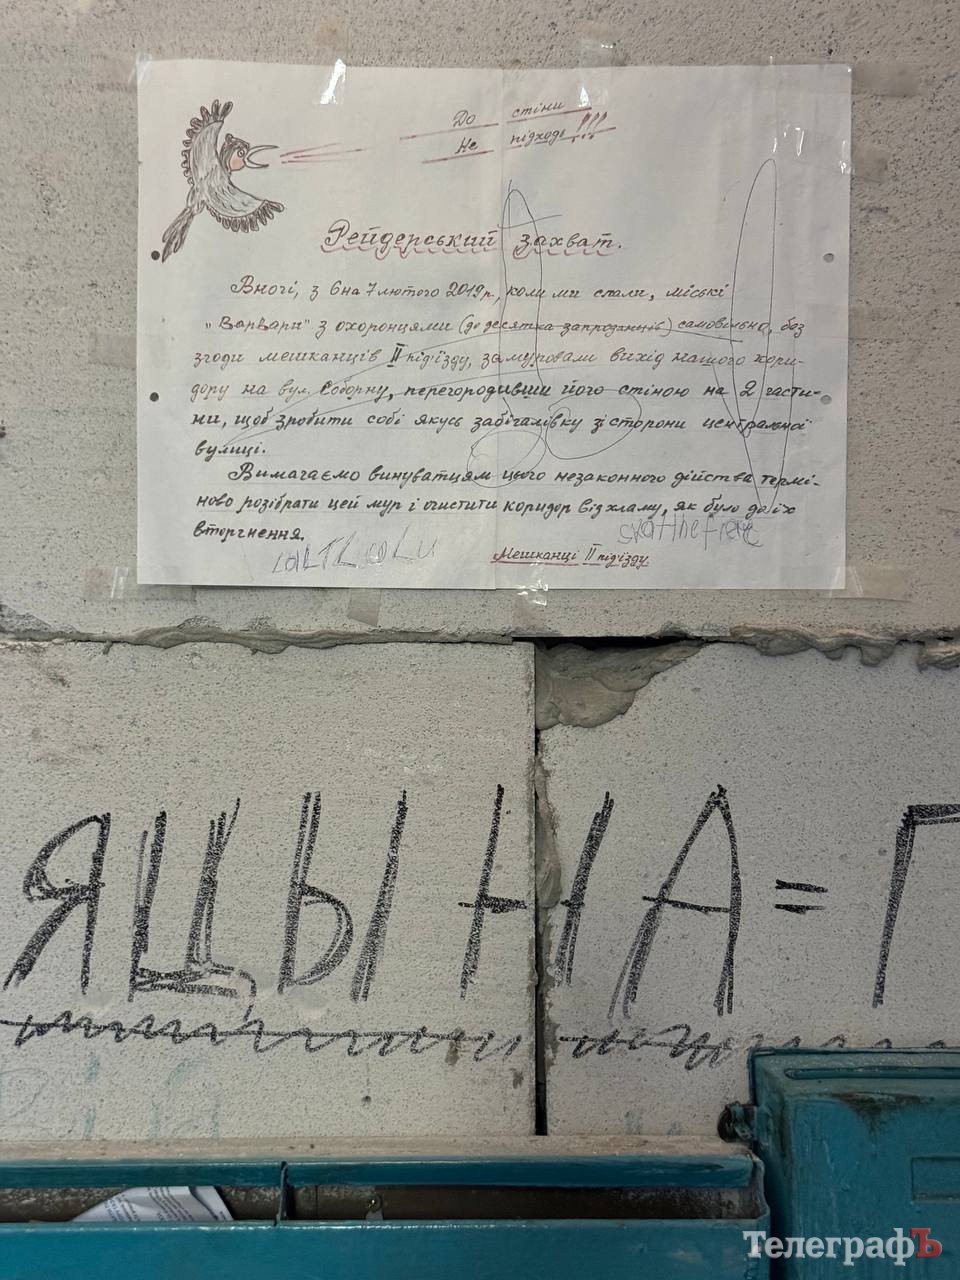 До стіни
Не підходь!!!
Рейдерський захват.
Вночі, з 6 на 7 лютого 2019 р., коли ми спали, міські
"Варвари" з охоронцями (до десятка запроданців) самовільно, без
згоди мешканців II під'їзду, замуровали вихід нашого кори-
дору на вул. Соборну, перегородивши його стіною на 2 части-
ни, щоб зробити собі якусь забігалівку зі сторони центральної
вулиці.
Вимагаємо винуватцям цього незаконного дійства термі-
ново розібрати цей мур і очистити коридор від хламу, як було до їх
вторгнення.
Мешканці II під'їзду
ЯЦЫНА=Г
ТелеграфЪ